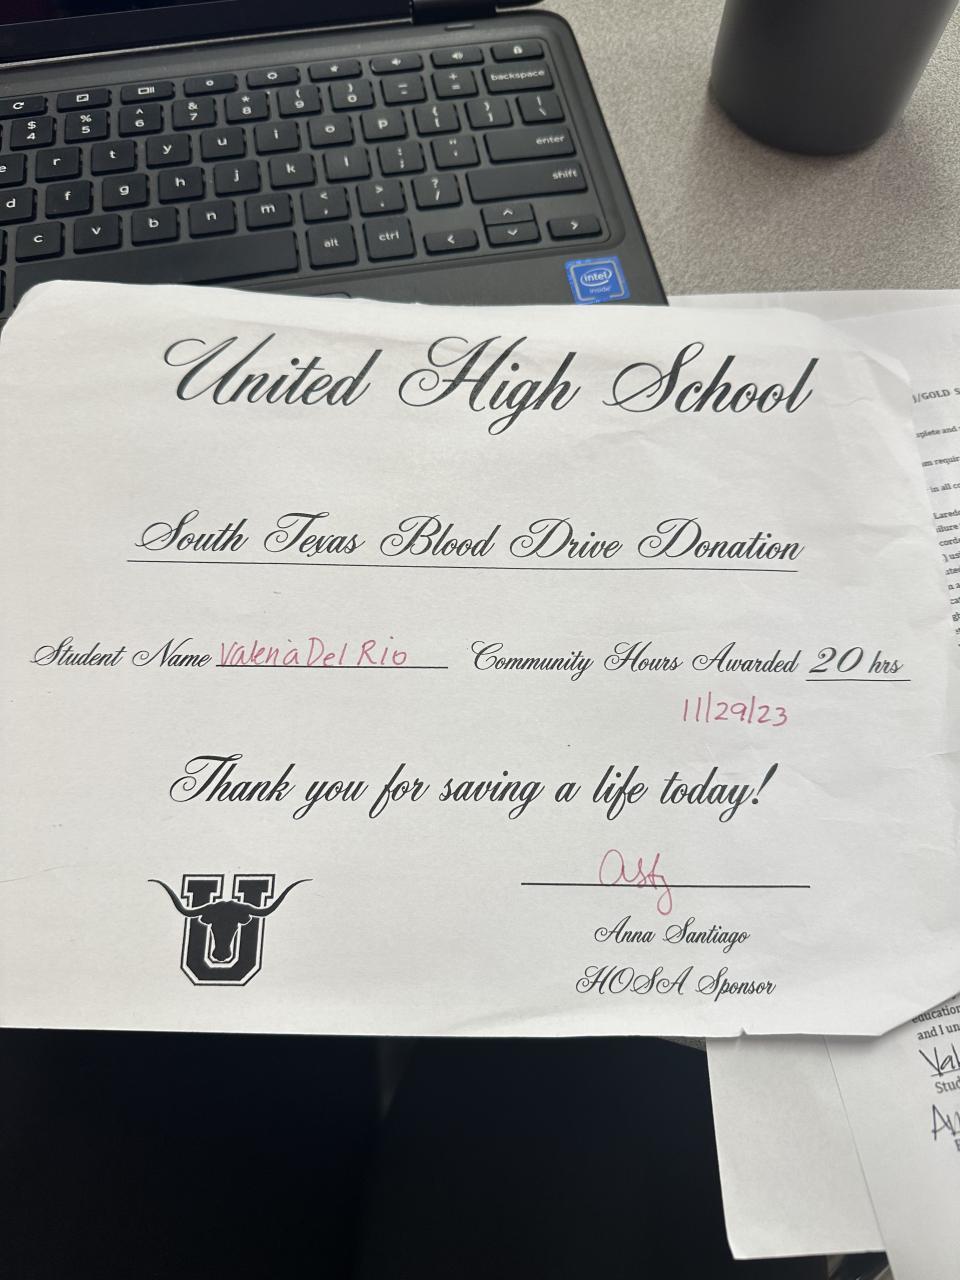 backspace
$ % ^ & * ( ) _ +
4 5 6 7 8 9 0 - =
e r t y u i o p { } |
[ ] \
enter
d f g h j k l : "
; '
shift
c v b n m < > ?
, . /
alt ctrl
intel
inside
United High School
South Texas Blood Drive Donation
Student Name Valeria Del Rio Community Hours Awarded 20 hrs
11/29/23
Thank you for saving a life today!
U
Anna Santiago
HOSA Sponsor
/GOLD S
plete and
in all co
Laredo
education
and I un
Val
Stud